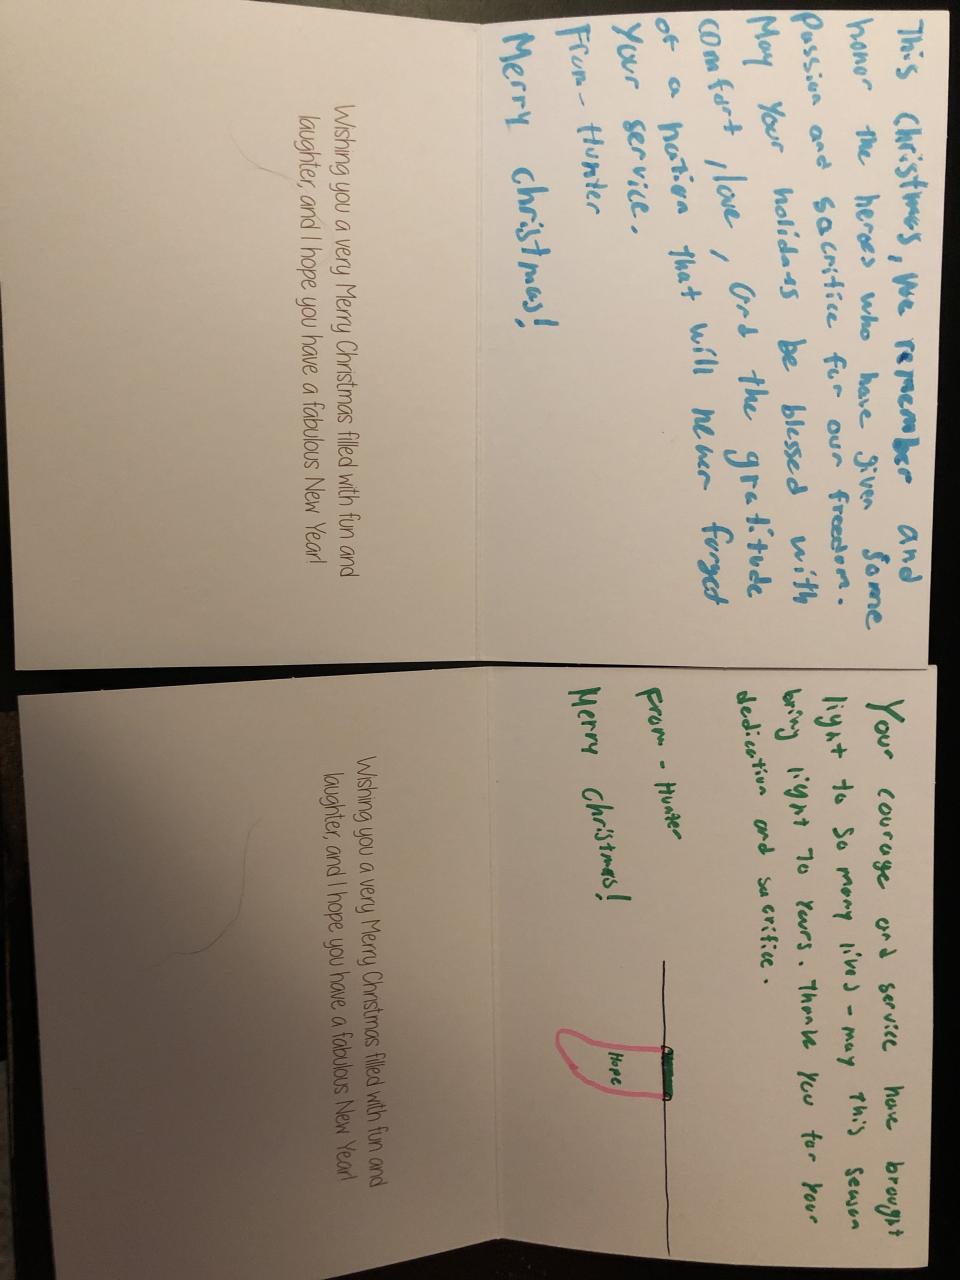 This Christmas, we remember and
honor the heroes who have given some
Passion and sacrifice for our freedom.
May your holidays be blessed with
comfort, love, and the gratitude
of a nation that will never forget
your service.
From - Hunter
Merry Christmas!
Wishing you a very Merry Christmas filled with fun and
laughter, and I hope you have a fabulous New Year!
Your courage and service have brought
light to so many lives - may this season
bring light to yours. Thank you for your
dedication and sacrifice.
From - Hunter
Hope
Merry Christmas!
Wishing you a very Merry Christmas filled with fun and
laughter, and I hope you have a fabulous New Year!